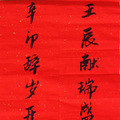 辛卯辞岁开
壬辰献瑞盛